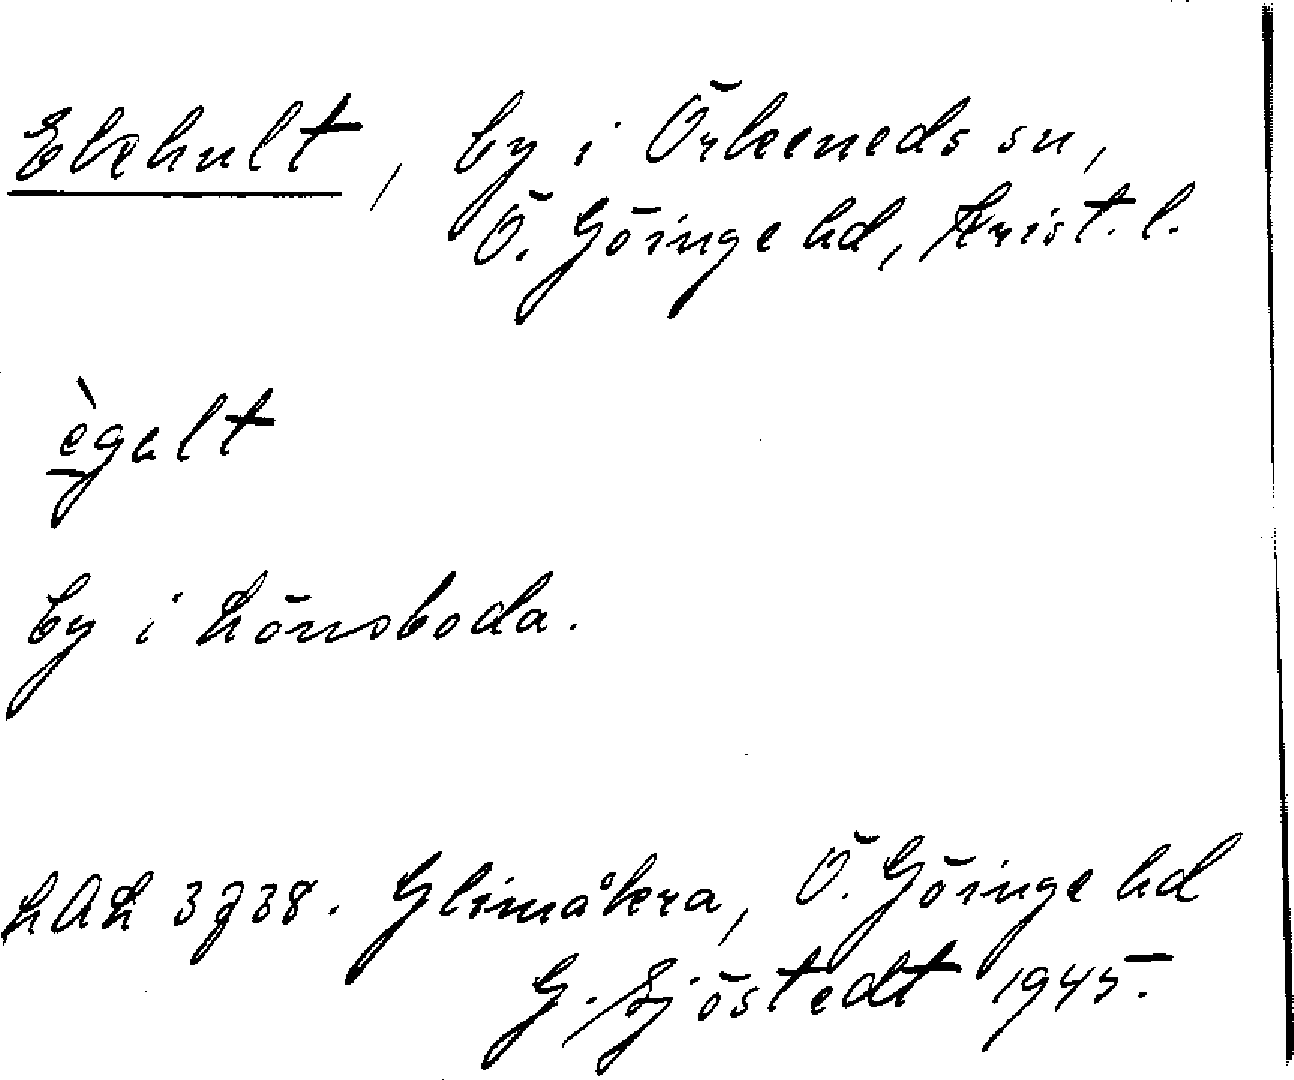 Ekehult, by i Örkeneds sn,
Ö. Göinge hd, Krist. l.
ègalt
by i Lönsboda.
LAL 3738. Glimåkra, Ö. Göinge hd
G. Sjöstedt 1945.